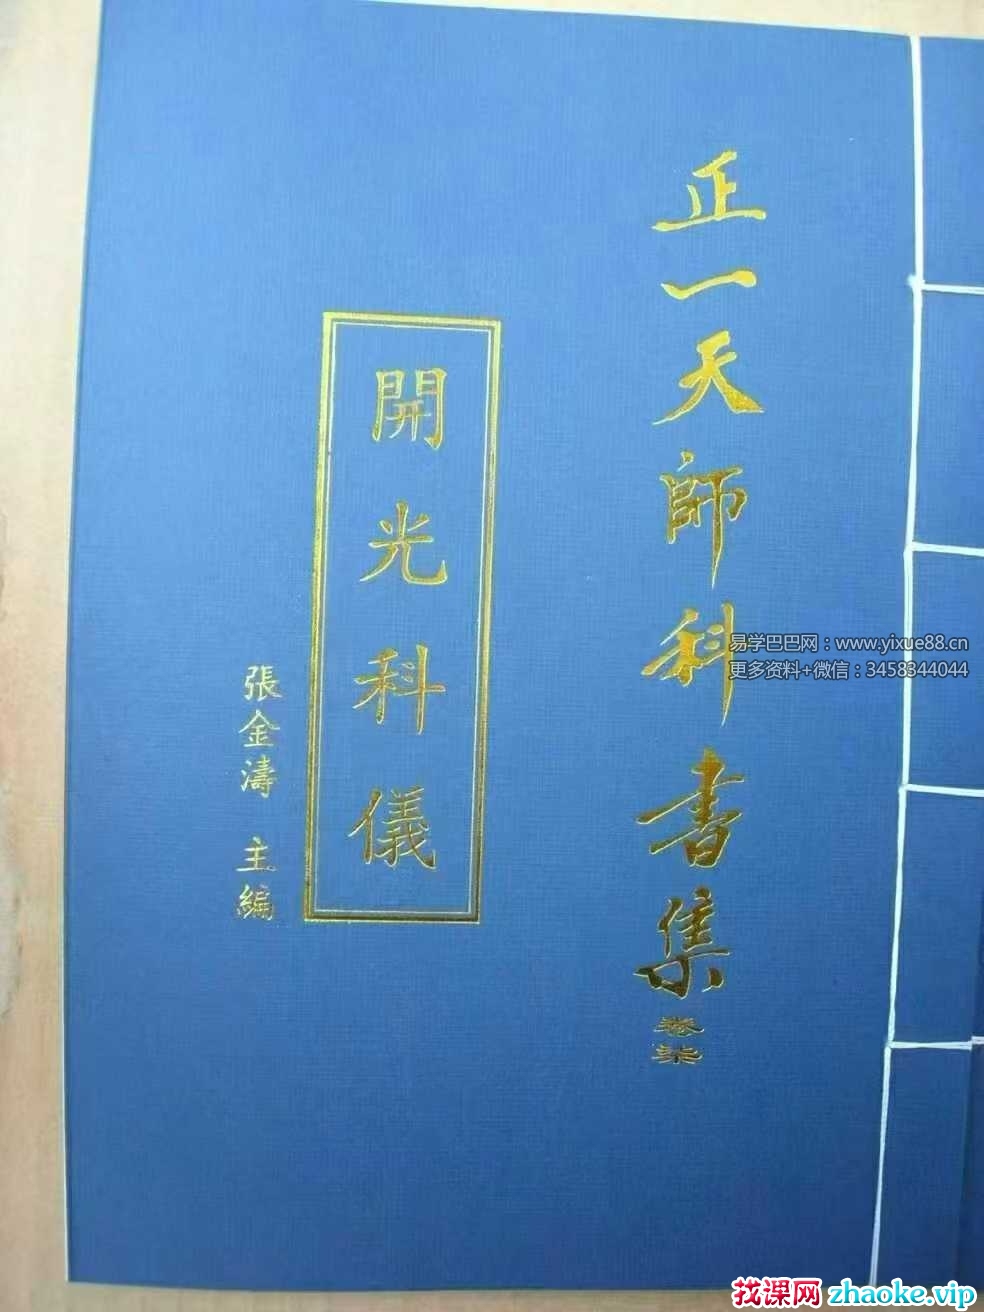 正一天師科書集
卷柒
開光科儀
張金濤 主編
易学巴巴网：www.yixue88.cn
更多资料+微信：3458344044
找课网 zhaoke.vip